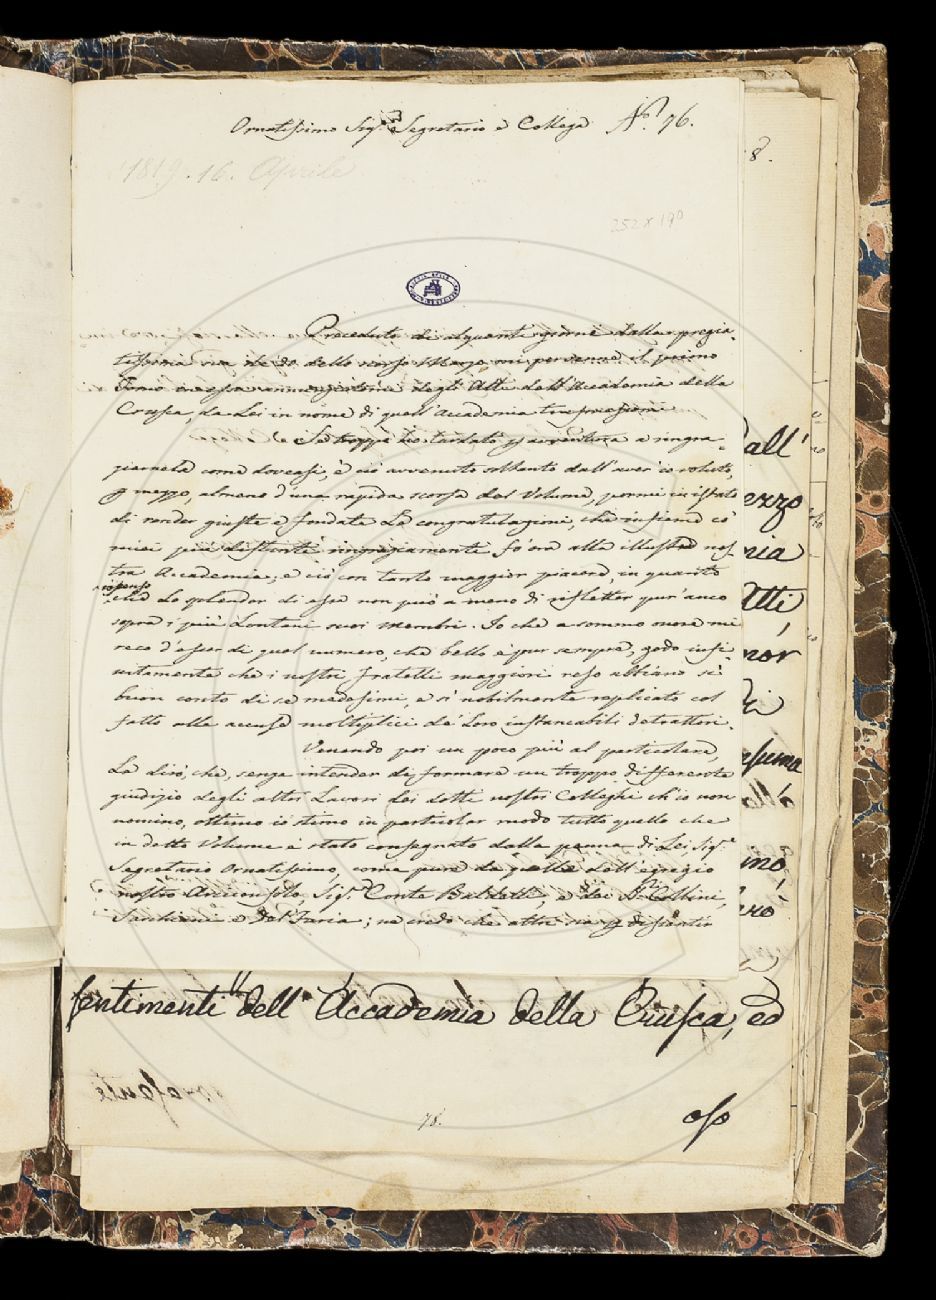 Ornatissimo Sig.r Segretario e Collega N.o 96.
8.
1819. 16. Aprile
252 x 190
Preceduto di alquanti giorni dalla pregia-
tissima sua de' 30. dello scorso Marzo mi pervenne il primo
Tomo in essa annunziatomi degli Atti dell'Accademia della
Crusca, da Lei in nome di quell'Accademia
Se troppo ho tardato a ringra-
ziarnela come doveasi, è ciò avvenuto soltanto dall'aver io voluto,
p mezzo, almeno d'una rapida scorsa del Volume, pormi in istato
di render giuste e fondate le congratulazioni, che insieme co'
miei più distinti ringraziamenti fo ora alla illustre nos-
tra Accademia; e ciò con tanto maggior piacere, in quanto
che lo splendor di essa non può a meno di rifletter pur anco
sopra i più lontani suoi membri. Io che a sommo onore mi
reco d'esser di quel numero, che bello è pur sempre, godo infi-
nitamente che i nostri fratelli maggiori reso abbiano sì
buon conto di se medesimi, e sì nobilmente replicato col
fatto alle accuse moltiplici de' loro instancabili detrattori.
Venendo poi un poco più al particolare,
Le dirò, che, senza intender di formare un troppo differente
giudizio degli altri Lavori dei dotti nostri Colleghi ch'io non
nomino, ottimo io stimo in particolar modo tutto quello che
in detto Volume è stato consegnato dalla penna di Lei, Sig.r
Segretario Ornatissimo, come pure da quella dell'egregio
nostro Arciconsolo, Sig.r Conte Baldelli, e dei Sig.ri Collini,
Sarchiani e Del Furia; nè credo che altri sia p dissentir
dall'
ezzo
nia
Atti
nor
di
ssuma
ino,
erò
sentimenti dell'Accademia della Crusca, ed
78.